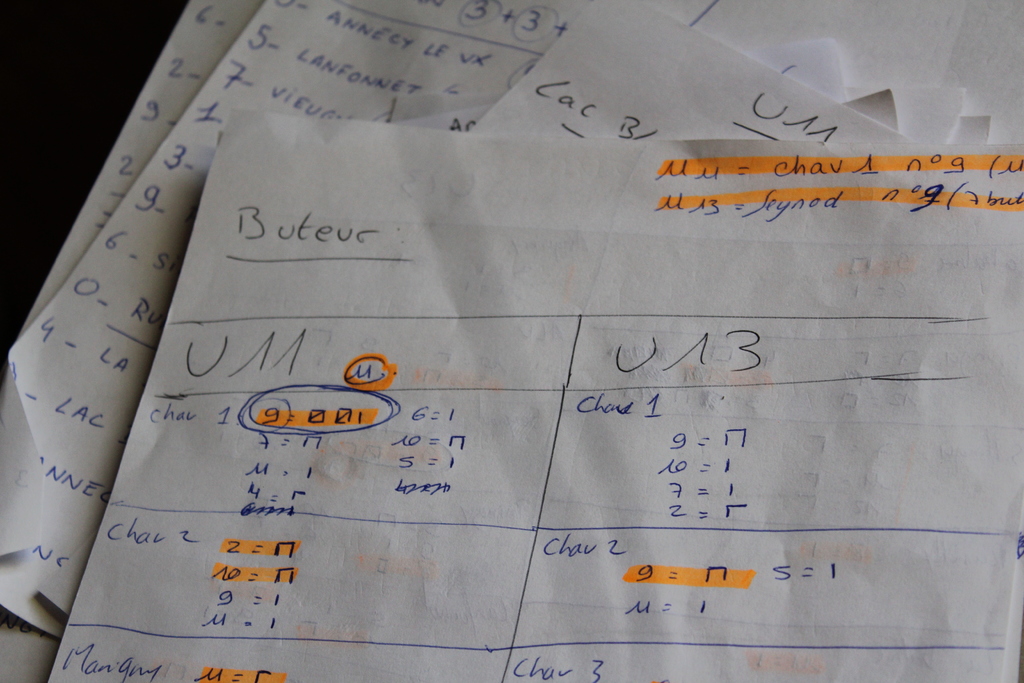 6-
ANNECY LE VX
3 + 3 +
5- LANFONNET
2- 7- VIEUG
9- 1
Lac B/
U11
2 3-
9-
6- Si
0- RU
4- LA
- LAC
ANNEC
U11 = chav 1 n°9 (11
U13 = Seynod n°9 (7 but
Buteur :
U11 11
U13
Chav 1 9 = 1 6 = 1
7 = 10 =
11 = 1 5 = 1
4 =
Chav 1
9 =
10 = 1
7 = 1
2 =
Chav 2
2 =
10 =
9 = 1
11 = 1
Chav 2
9 = 5 = 1
11 = 1
Marigny 11 =
Chav 3